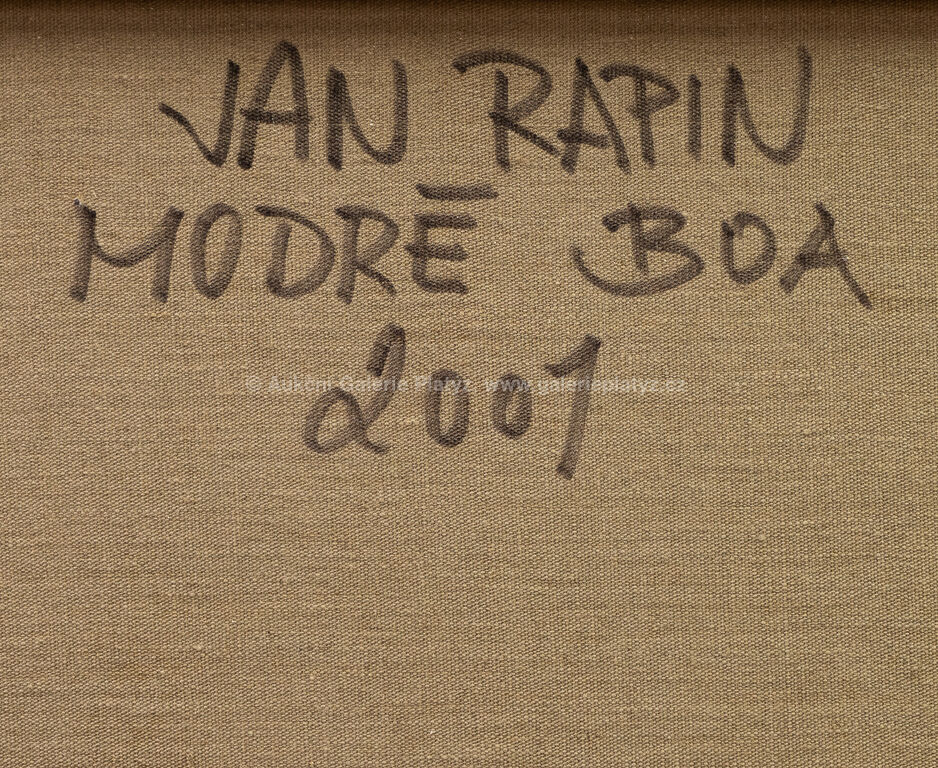 JAN RAPIN
MODRÉ BOA
2001
© Aukční Galerie Platýz www.galerieplatyz.cz